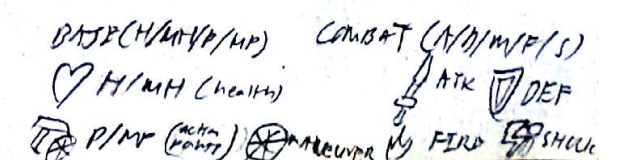 BASE(H/MH/P/MP) COMBAT (A/D/M/F/S)
H/MH (health) ATK DEF
P/MP (action points) MANEUVER FIRE SHOCK